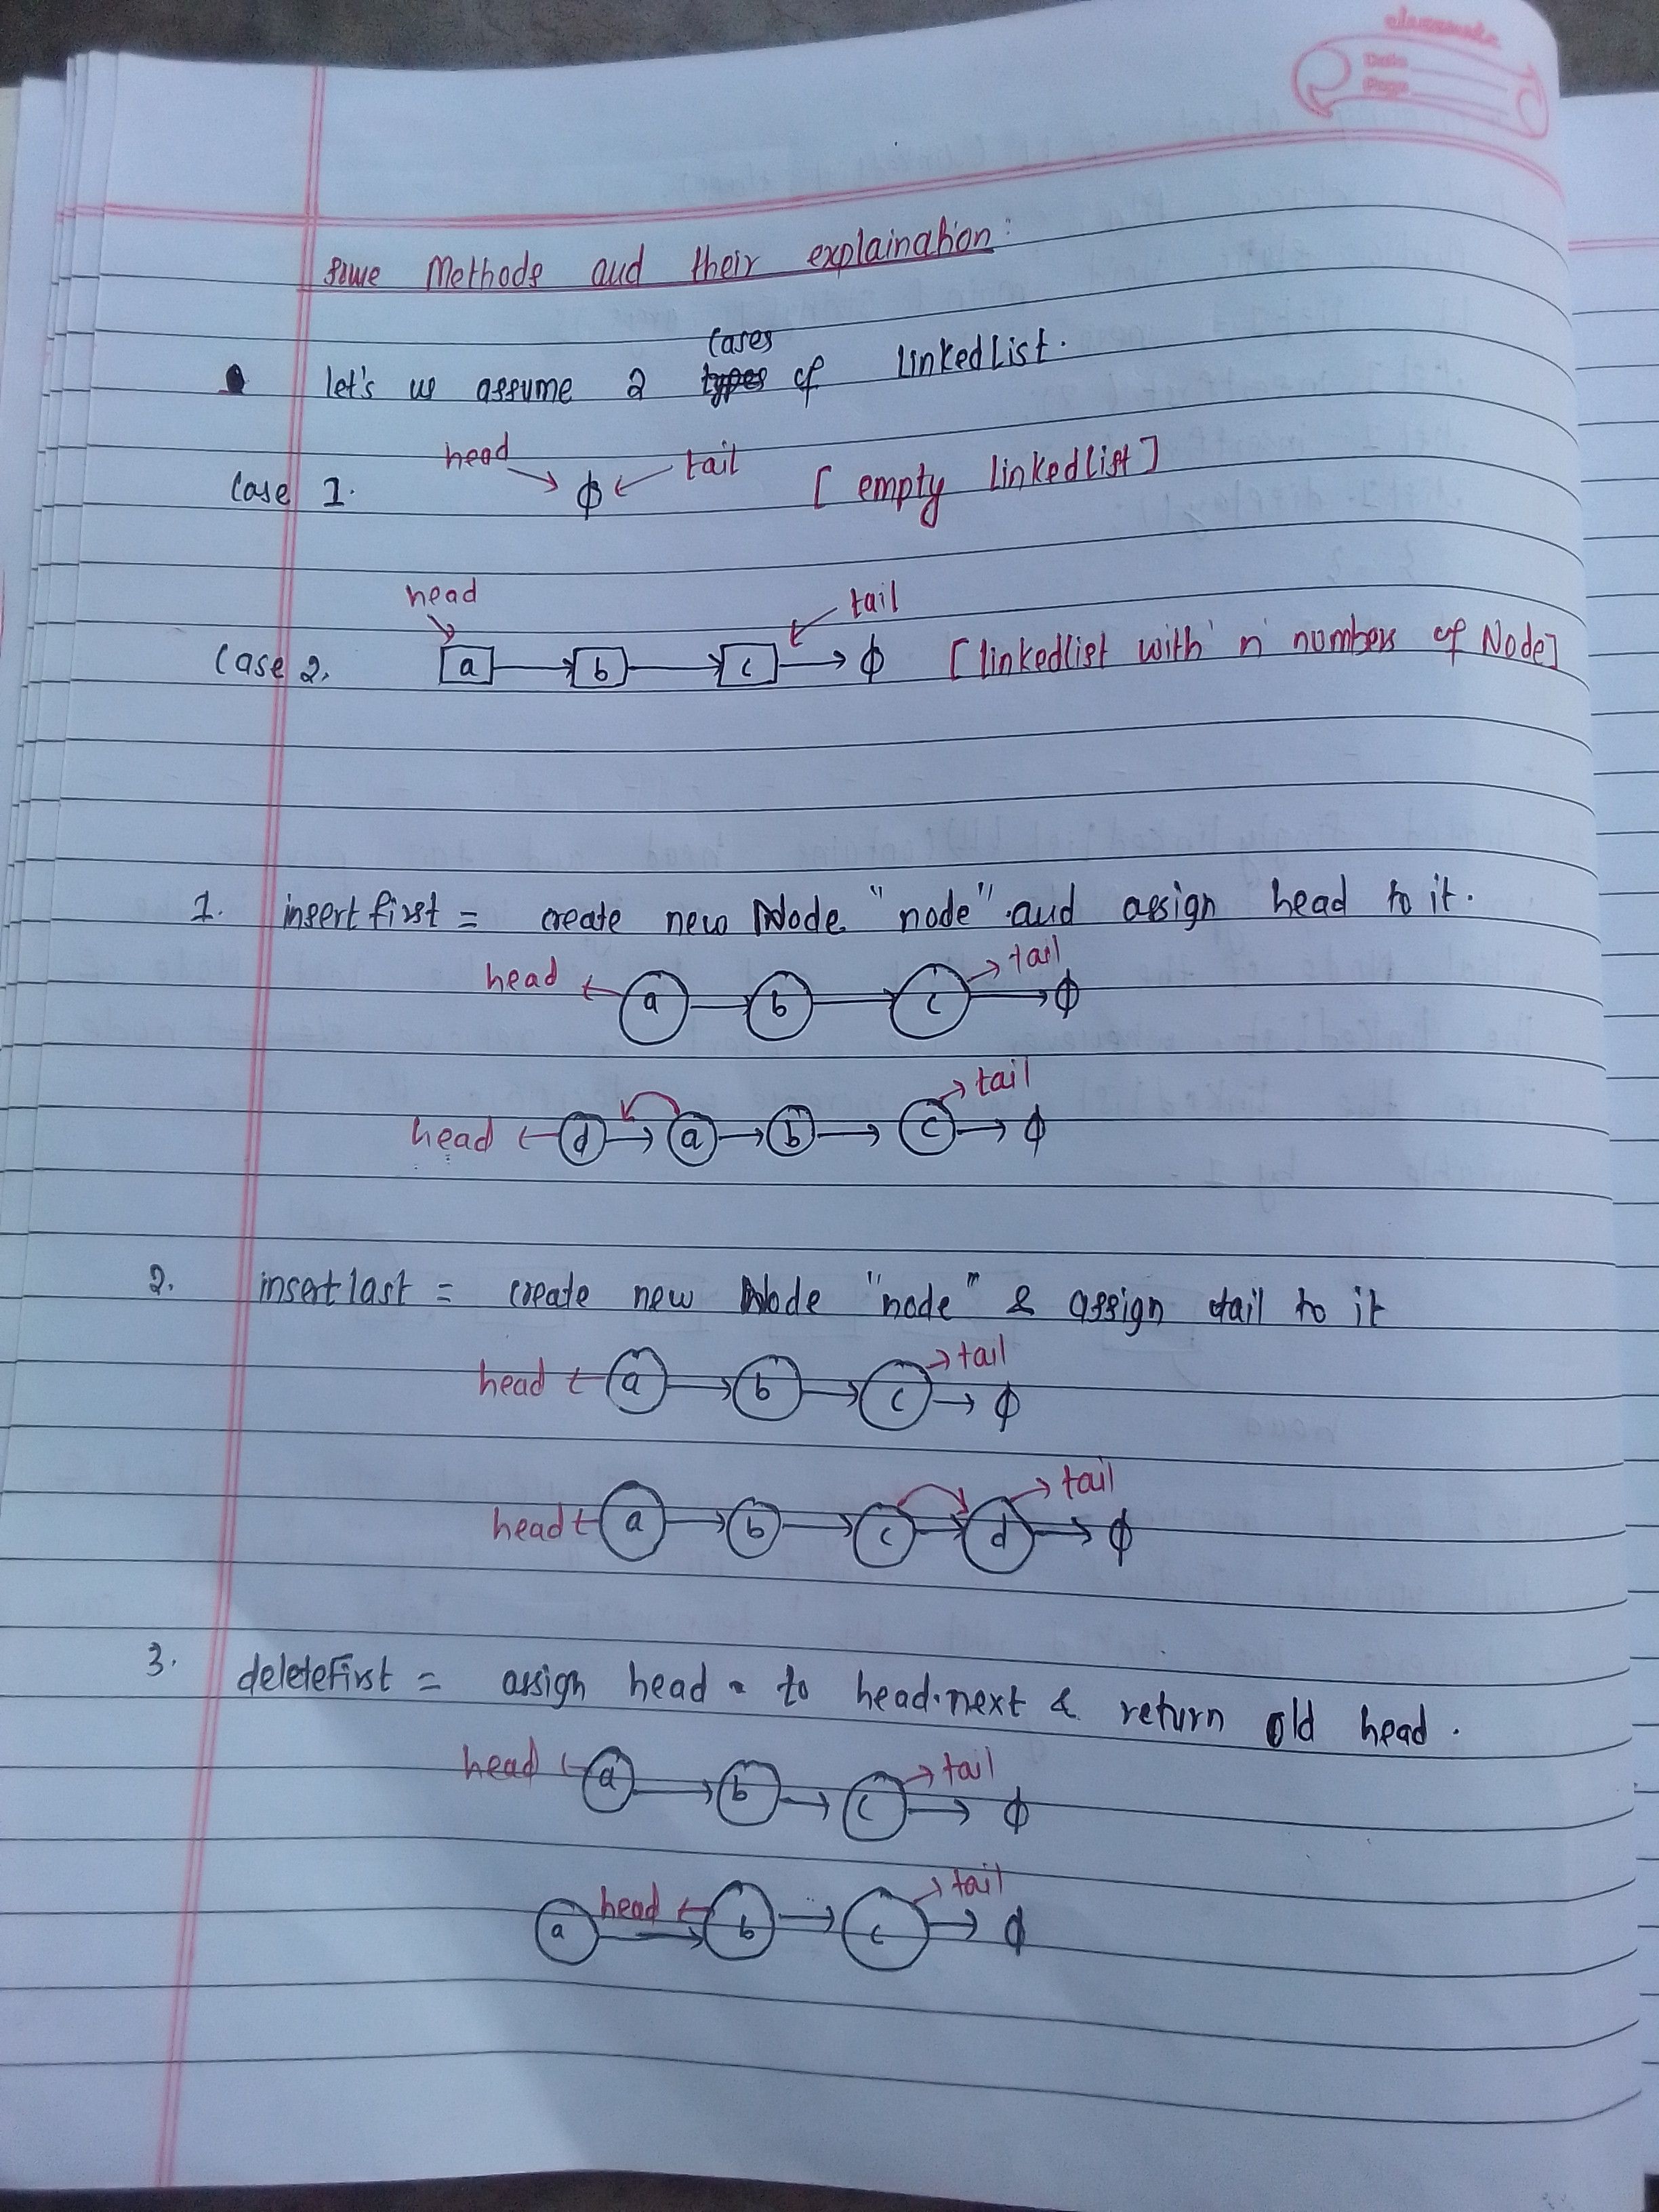 classmate
Date
Page
some Methods and their explaination:
cases
let's us assume 2 types of linkedList.
head tail
Case 1. ϕ [empty linkedlist]
head tail
Case 2. a b c ϕ [linkedlist with 'n' numbers of Node]
1. insertfirst = create new Node "node" and assign head to it.
head a b c tail ϕ
head d a b c tail ϕ
2. insertlast = create new Node "node" & assign tail to it
head a b c tail ϕ
head a b c d tail ϕ
3. deleteFirst = assign head to head.next & return old head.
head a b c tail ϕ
a head b c tail ϕ